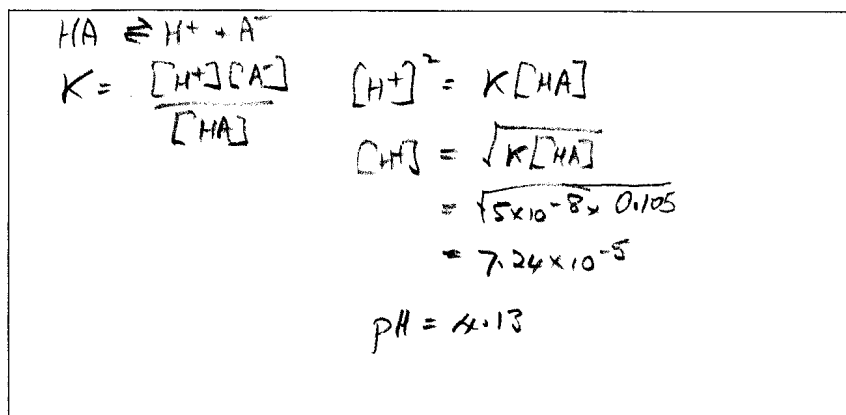 HA ⇌ H⁺ + A⁻
K = [H⁺][A⁻] / [HA]
[H⁺]² = K[HA]
[H⁺] = √K[HA]
= √5×10⁻⁸ × 0.105
= 7.24×10⁻⁵
pH = 4.13